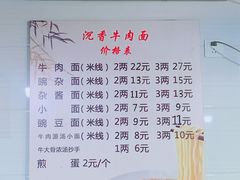 沉香牛肉面
价格表
牛肉面(米线) 2两22元 3两27元
豌杂面(米线) 2两10元 3两13元
杂酱面(米线) 2两11元 3两13元
小面(米线) 2两7元 3两9元
豌豆面(米线) 2两9元 3两11元
牛肉源汤小面(米线) 2两8元 3两10元
牛大骨浓汤抄手 1两6元
煎蛋2元/个